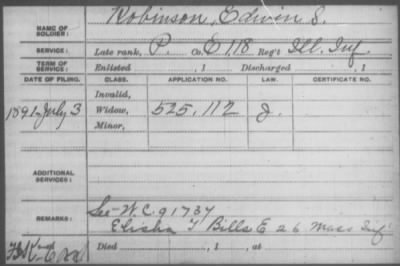 NAME OF SOLDIER: Robinson, Edwin S.
SERVICE: Late rank, P. Co. E 118 Reg't Ill. Inf.
TERM OF SERVICE: Enlisted , 1 Discharged , 1
DATE OF FILING. CLASS. APPLICATION NO. LAW. CERTIFICATE NO.
Invalid,
1891-July 3 Widow, 525,112 J.
Minor,
ADDITIONAL SERVICES:
REMARKS: See-W.C. 91737
Elisha T Bills E 26 Mass Inf
Died , 1 , at